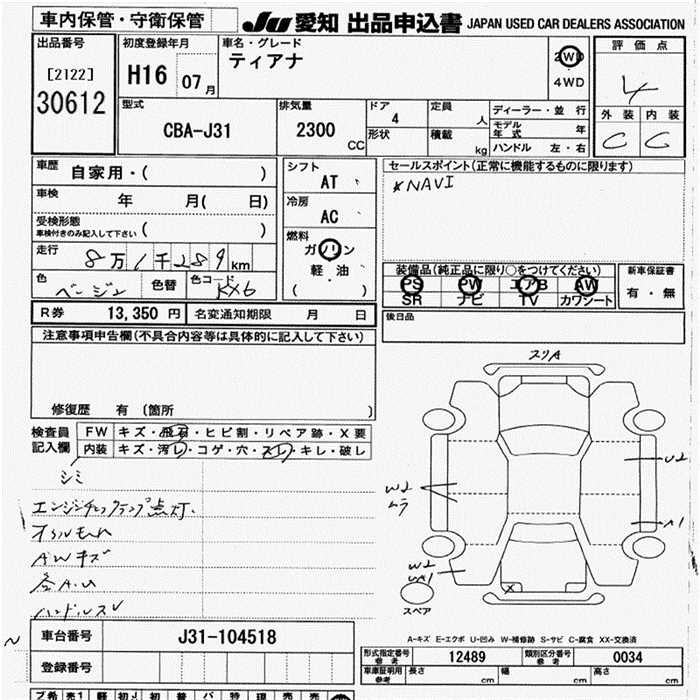 車内保管・守衛保管
JU 愛知 出品申込書 JAPAN USED CAR DEALERS ASSOCIATION
出品番号
[2122]
30612
初度登録年月
H16 07月
車名・グレード
ティアナ
2WD
4WD
評価点
4
外装 内装
C C
型式
CBA-J31
排気量
2300 CC
ドア
4
形状
定員
人
積載
kg
ディーラー・並行
モデル年式 年
ハンドル 左・右
車歴
自家用・( )
車検
年 月( 日)
受検形態
車検付きのみ記入して下さい ( )
走行
8万1千289km
色
ベージュ
色替
色コード
シフト
AT
冷房
AC
燃料
ガソリン
軽油
( )
セールスポイント(正常に機能するものに限ります)
NAVI
装備品(純正品に限り○をつけてください)
PS PW エアB AW
SR ナビ TV カワシート
新車保証書
有・無
後日品
R券 13,350円 名変通知期限 月 日
注意事項申告欄(不具合内容等は具体的に記入して下さい)
修復歴 有(箇所 )
検査員記入欄
FW キズ・飛石・ヒビ割・リペア跡・X要
内装 キズ・汚レ・コゲ・穴・スレ・キレ・破レ
シミ
エンジンチェックランプ点灯.
オイルもれ
AWキズ
各A.U
ハンドルスレ
スリA
U2
W2
ムラ
A1
W2
UA1
X
スペア
A-キズ E-エクボ U-凹み W-補修跡 S-サビ C-腐食 XX-交換済
車台番号 J31-104518
登録番号
形式指定番号 参考 12489 類別区分番号 参考 0034
車庫証明用 参考 長さ cm 幅 cm 高さ cm